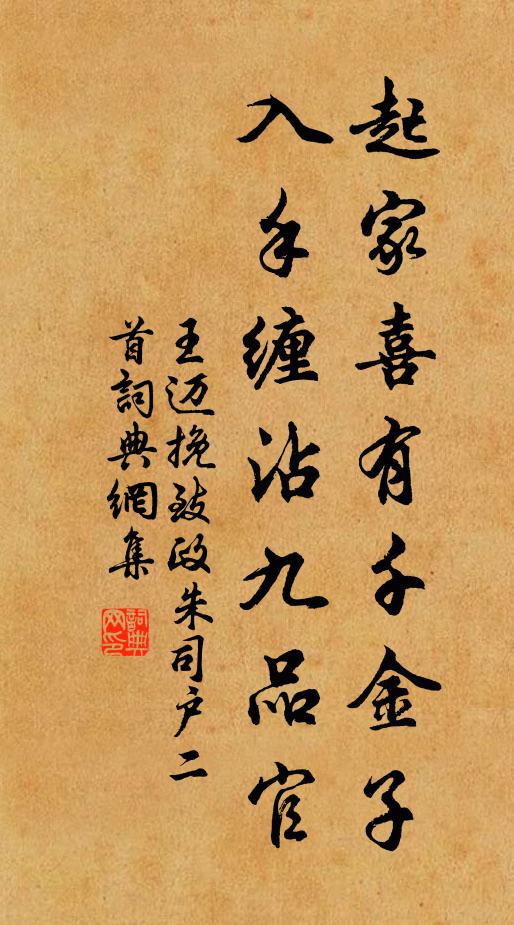 起家喜有千金子
入手缠沾九品官
王迈挽致政朱司户二
首詞典網集
詞典
网印